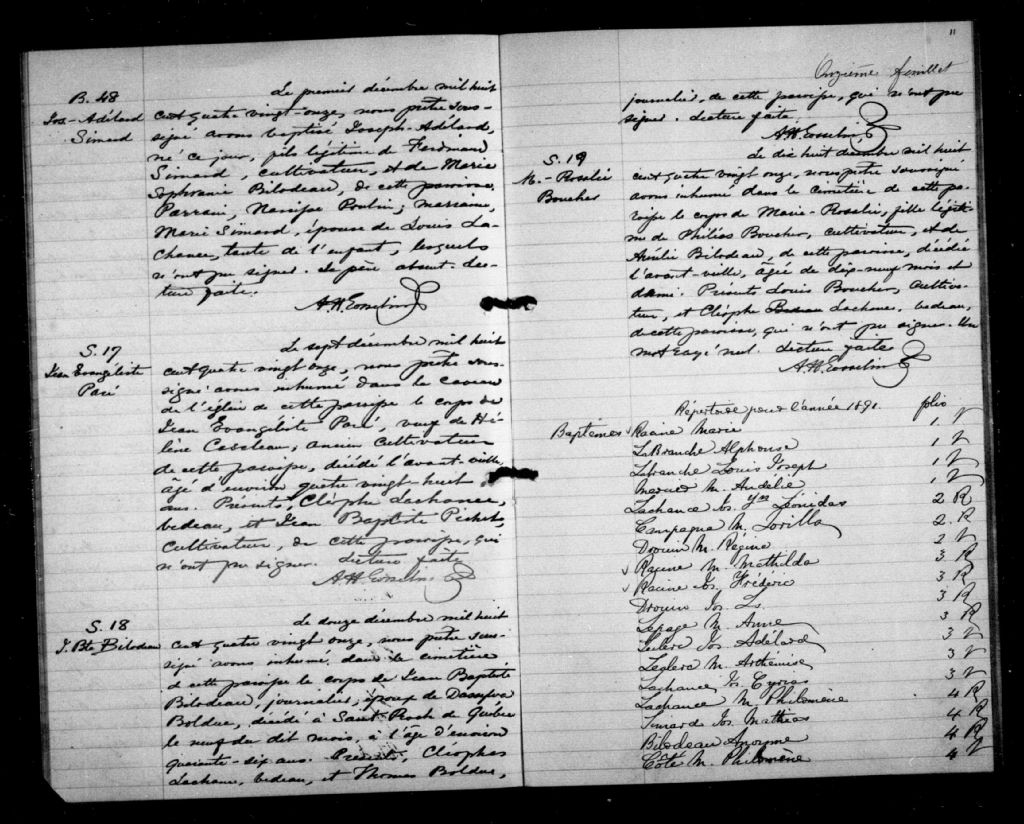 B. 48
Jos-Adélard
Simard
Le premier décembre mil huit
cent quatre vingt-onze, nous prêtre sous-
signé avons baptisé Joseph-Adélard,
né ce jour, fils légitime de Ferdinand
Simard, cultivateur, et de Marie
Sophranie Bilodeau, de cette paroisse.
Parrain, Narcisse Poulin; marraine,
Marie Simard, épouse de Louis La-
chance, tante de l'enfant, lesquels
n'ont pu signer. Le père absent. Lec-
ture faite.
S. 17
Jean Evangéliste
Paré
Le sept décembre mil huit
cent quatre vingt onze, nous prêtre sous-
signé avons inhumé dans le caveau
de l'église de cette paroisse le corps de
Jean Evangéliste Paré, veuf de Hé-
lène, ancien cultivateur
de cette paroisse, décédé l'avant-veille,
âgé d'environ quatre vingt-huit
ans. Présents, Cléophe Lachance,
bedeau, et Jean Baptiste Pichet,
cultivateur, de cette paroisse, qui
n'ont pu signer. Lecture faite
S. 18
J. Bte Bilodeau
Le douze décembre mil huit
cent quatre vingt onze, nous prêtre sous-
signé avons inhumé dans le cimetière
de cette paroisse le corps de Jean Baptiste
Bilodeau, journalier, époux de
Bolduc, décédé à Saint-Roch de Québec
le neuf du dit mois, à l'âge d'environ
quarante-six ans. Présents, Cléophas
Lachance, bedeau, et Thomas Bolduc,
11
Onzième feuillet
journalier, de cette paroisse, qui n'ont pu
signer. Lecture faite.
S. 19
M.-Rosalie
Boucher
Le dix huit décembre mil huit
cent quatre vingt onze, nous prêtre soussigné
avons inhumé dans le cimetière de cette pa-
roisse le corps de Marie-Rosalie, fille légiti-
me de Philéas Boucher, cultivateur, et de
Aurélie Bilodeau, de cette paroisse, décédée
l'avant-veille, âgée de dix-neuf mois et
demi. Présents Louis Boucher, cultiva-
teur, et Cléophe Bedeau Lachance, bedeau,
de cette paroisse, qui n'ont pu signer. Un
mot rayé nul. Lecture faite
Répertoire pour l'année 1891. folio
Baptêmes Racine Marie 1. V
LaBranche Alphonse 1 V
Labranche Louis Joseph 1 V
M. Amélie 1 V
Lachance Js. Léonidas 2 R
Campagna M. 2. R
Drouin M. Régina 2 V
Racine M. Mathilda 3 R
Racine Js. Frédéric 3 R
Drouin Jos. Ls. 3 R
Lepage M. Anne 3 R
Leclerc Js. Adélard 3 V
Leclerc M. Arthémise 3 V
Lachance Js. Cyrias 3 V
Lachance M. Philomène 4 R
Simard Jos. Mathias 4 R
Bilodeau Anonyme 4 R
Côté M. Philomène 4 V